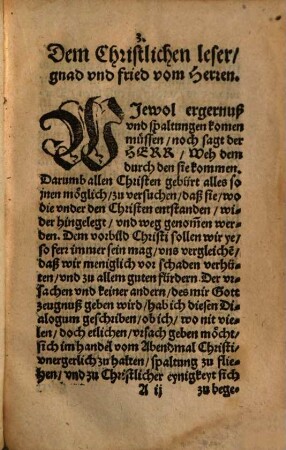 3.
Dem Christlichen leser/
gnad vnd fried vom Herren.
WJewol ergernuß
vnd spaltungen komen
müssen / noch sagt der
HERR / Weh dem
durch den sie kommen.
Darumb allen Christen gebürt alles so
jnen möglich / zu versuchen / daß sie / wo
die vnder den Christen entstanden / wi-
der hingelegt / vnd weg genom̃en wer-
den. Dem vorbild Christi sollen wir ye /
so fert immer sein mag / vns vergleichẽ /
daß wir meniglich vor schaden verhü-
ten / vnd zu allem guten fürdern. Der vr-
sachen vnd keiner andern / des mir Gott
zeugnuß geben wird / hab ich diesen Di-
alogum geschriben / ob ich / wo nit vie-
len / doch etlichen / vrsach geben möcht /
sich im handel vom Abendmal Christi /
vnergerlich zu halten / spaltung zu flie-
hen / vnd zu Christlicher eynigkeyt sich
A ij zu bege-